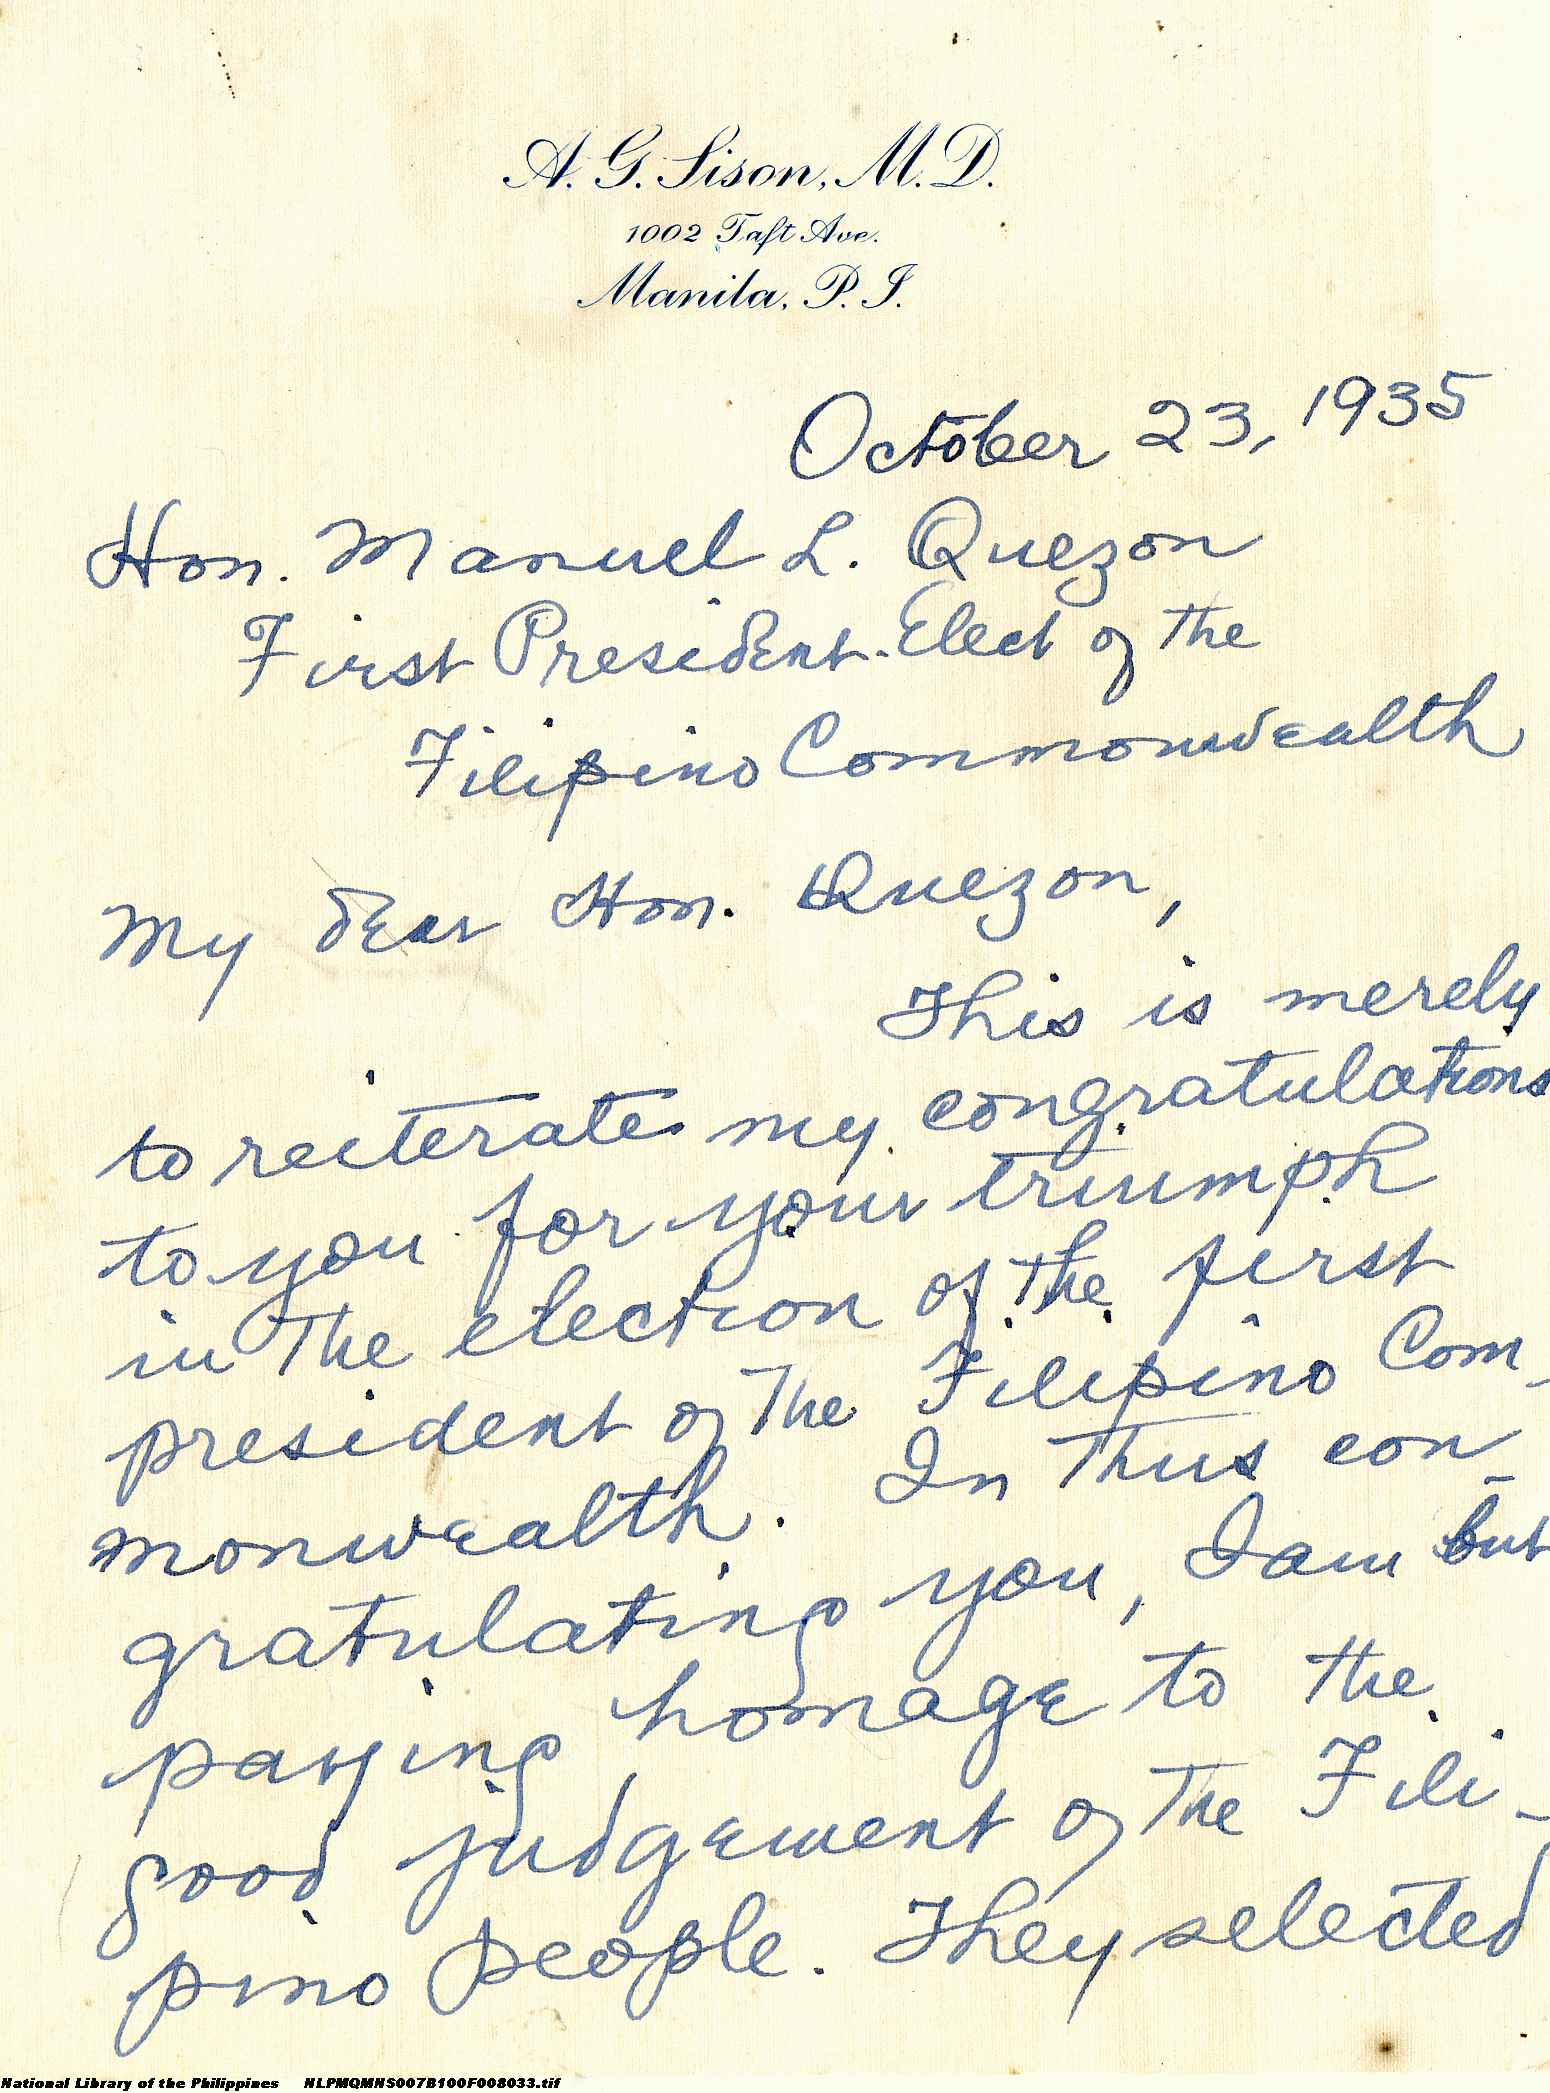 A. G. Sison, M. D.
1002 Taft Ave.
Manila, P. I.
October 23, 1935
Hon. Manuel L. Quezon
First President-Elect of the
Filipino Commonwealth
My dear Hon. Quezon,
This is merely
to reiterate my congratulations
to you for your triumph
in the election of the first
president of the Filipino Com-
monwealth. In thus con-
gratulating you, I am but
paying homage to the
good judgement of the Fili-
pino people. They selected
National Library of the Philippines NLPMQMNS007B100F008033.tif